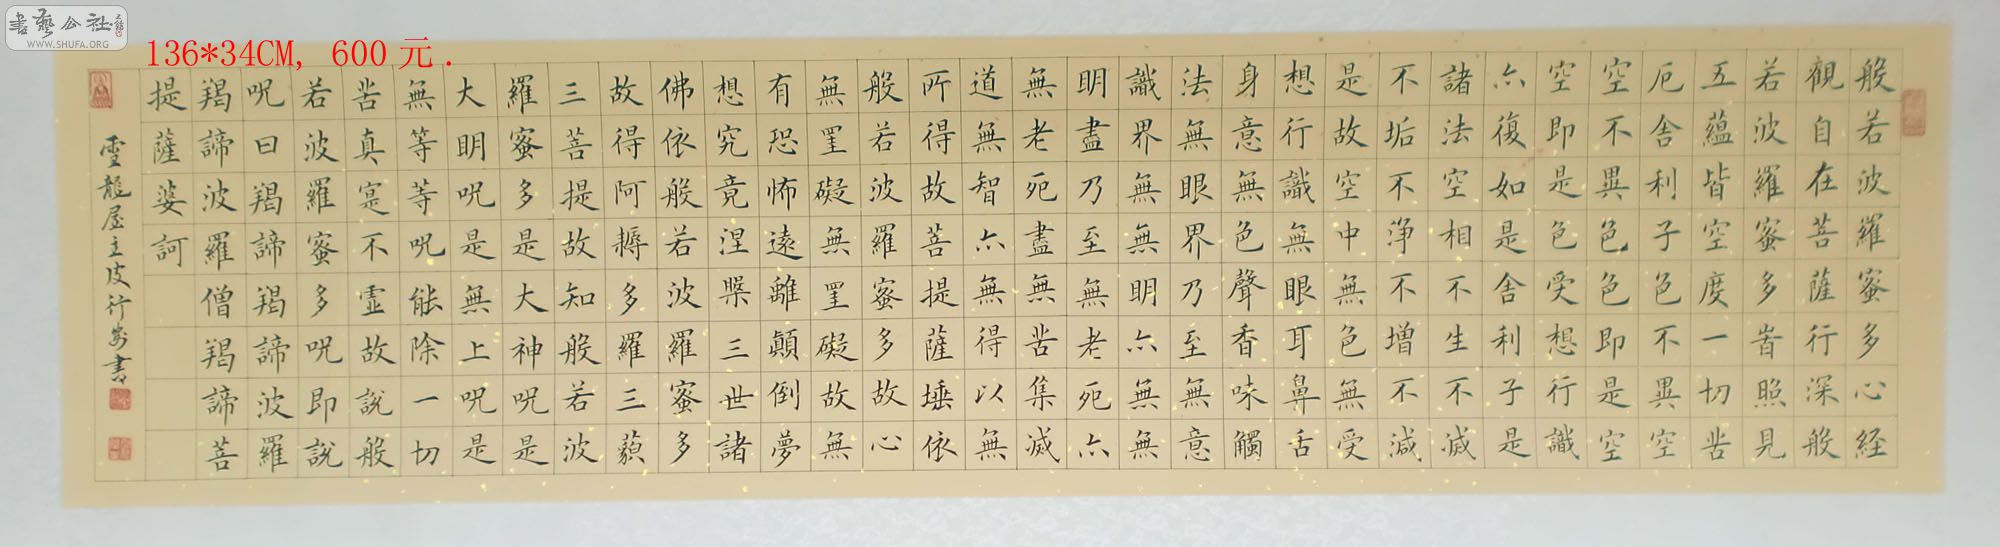 書藝公社
WWW.SHUFA.ORG
136*34CM, 600元.
般若波羅蜜多心経
觀自在菩薩行深般
若波羅蜜多旹照見
五蘊皆空度一切苦
厄舎利子色不異空
空不異色色即是空
空即是色受想行識
亦復如是舎利子是
諸法空相不生不滅
不垢不淨不增不減
是故空中無色無受
想行識無眼耳鼻舌
身意無色聲香味觸
法無眼界乃至無意
識界無無明亦無無
明盡乃至無老死亦
無老死盡無苦集滅
道無智亦無得以無
所得故菩提薩埵依
般若波羅蜜多故心
無罣礙無罣礙故無
有恐怖遠離顛倒夢
想究竟涅槃三世諸
佛依般若波羅蜜多
故得阿耨多羅三藐
三菩提故知般若波
羅蜜多是大神呪是
大明呪是無上呪是
無等等呪能除一切
苦真寔不虛故說般
若波羅蜜多呪即說
呪曰羯諦羯諦波羅
羯諦波羅僧羯諦菩
提薩婆訶
雪龍屋主皮行書